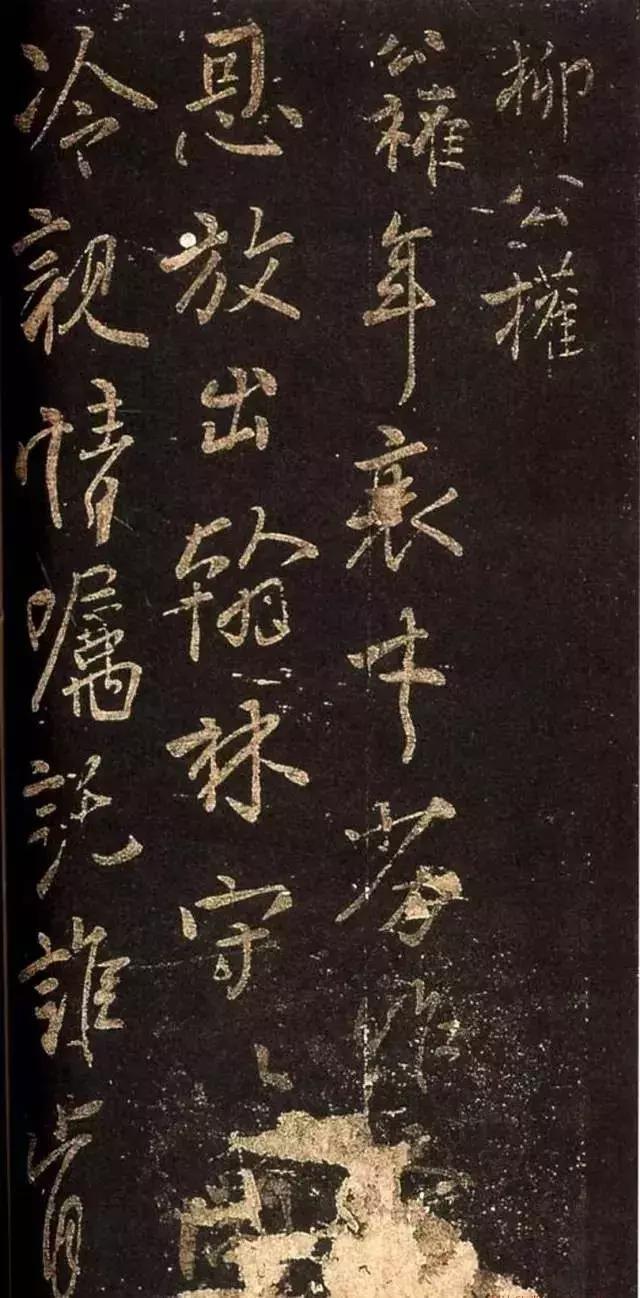 柳公權
公權年衰才劣昨
恩放出翰林守以
冷親情囑託誰肯